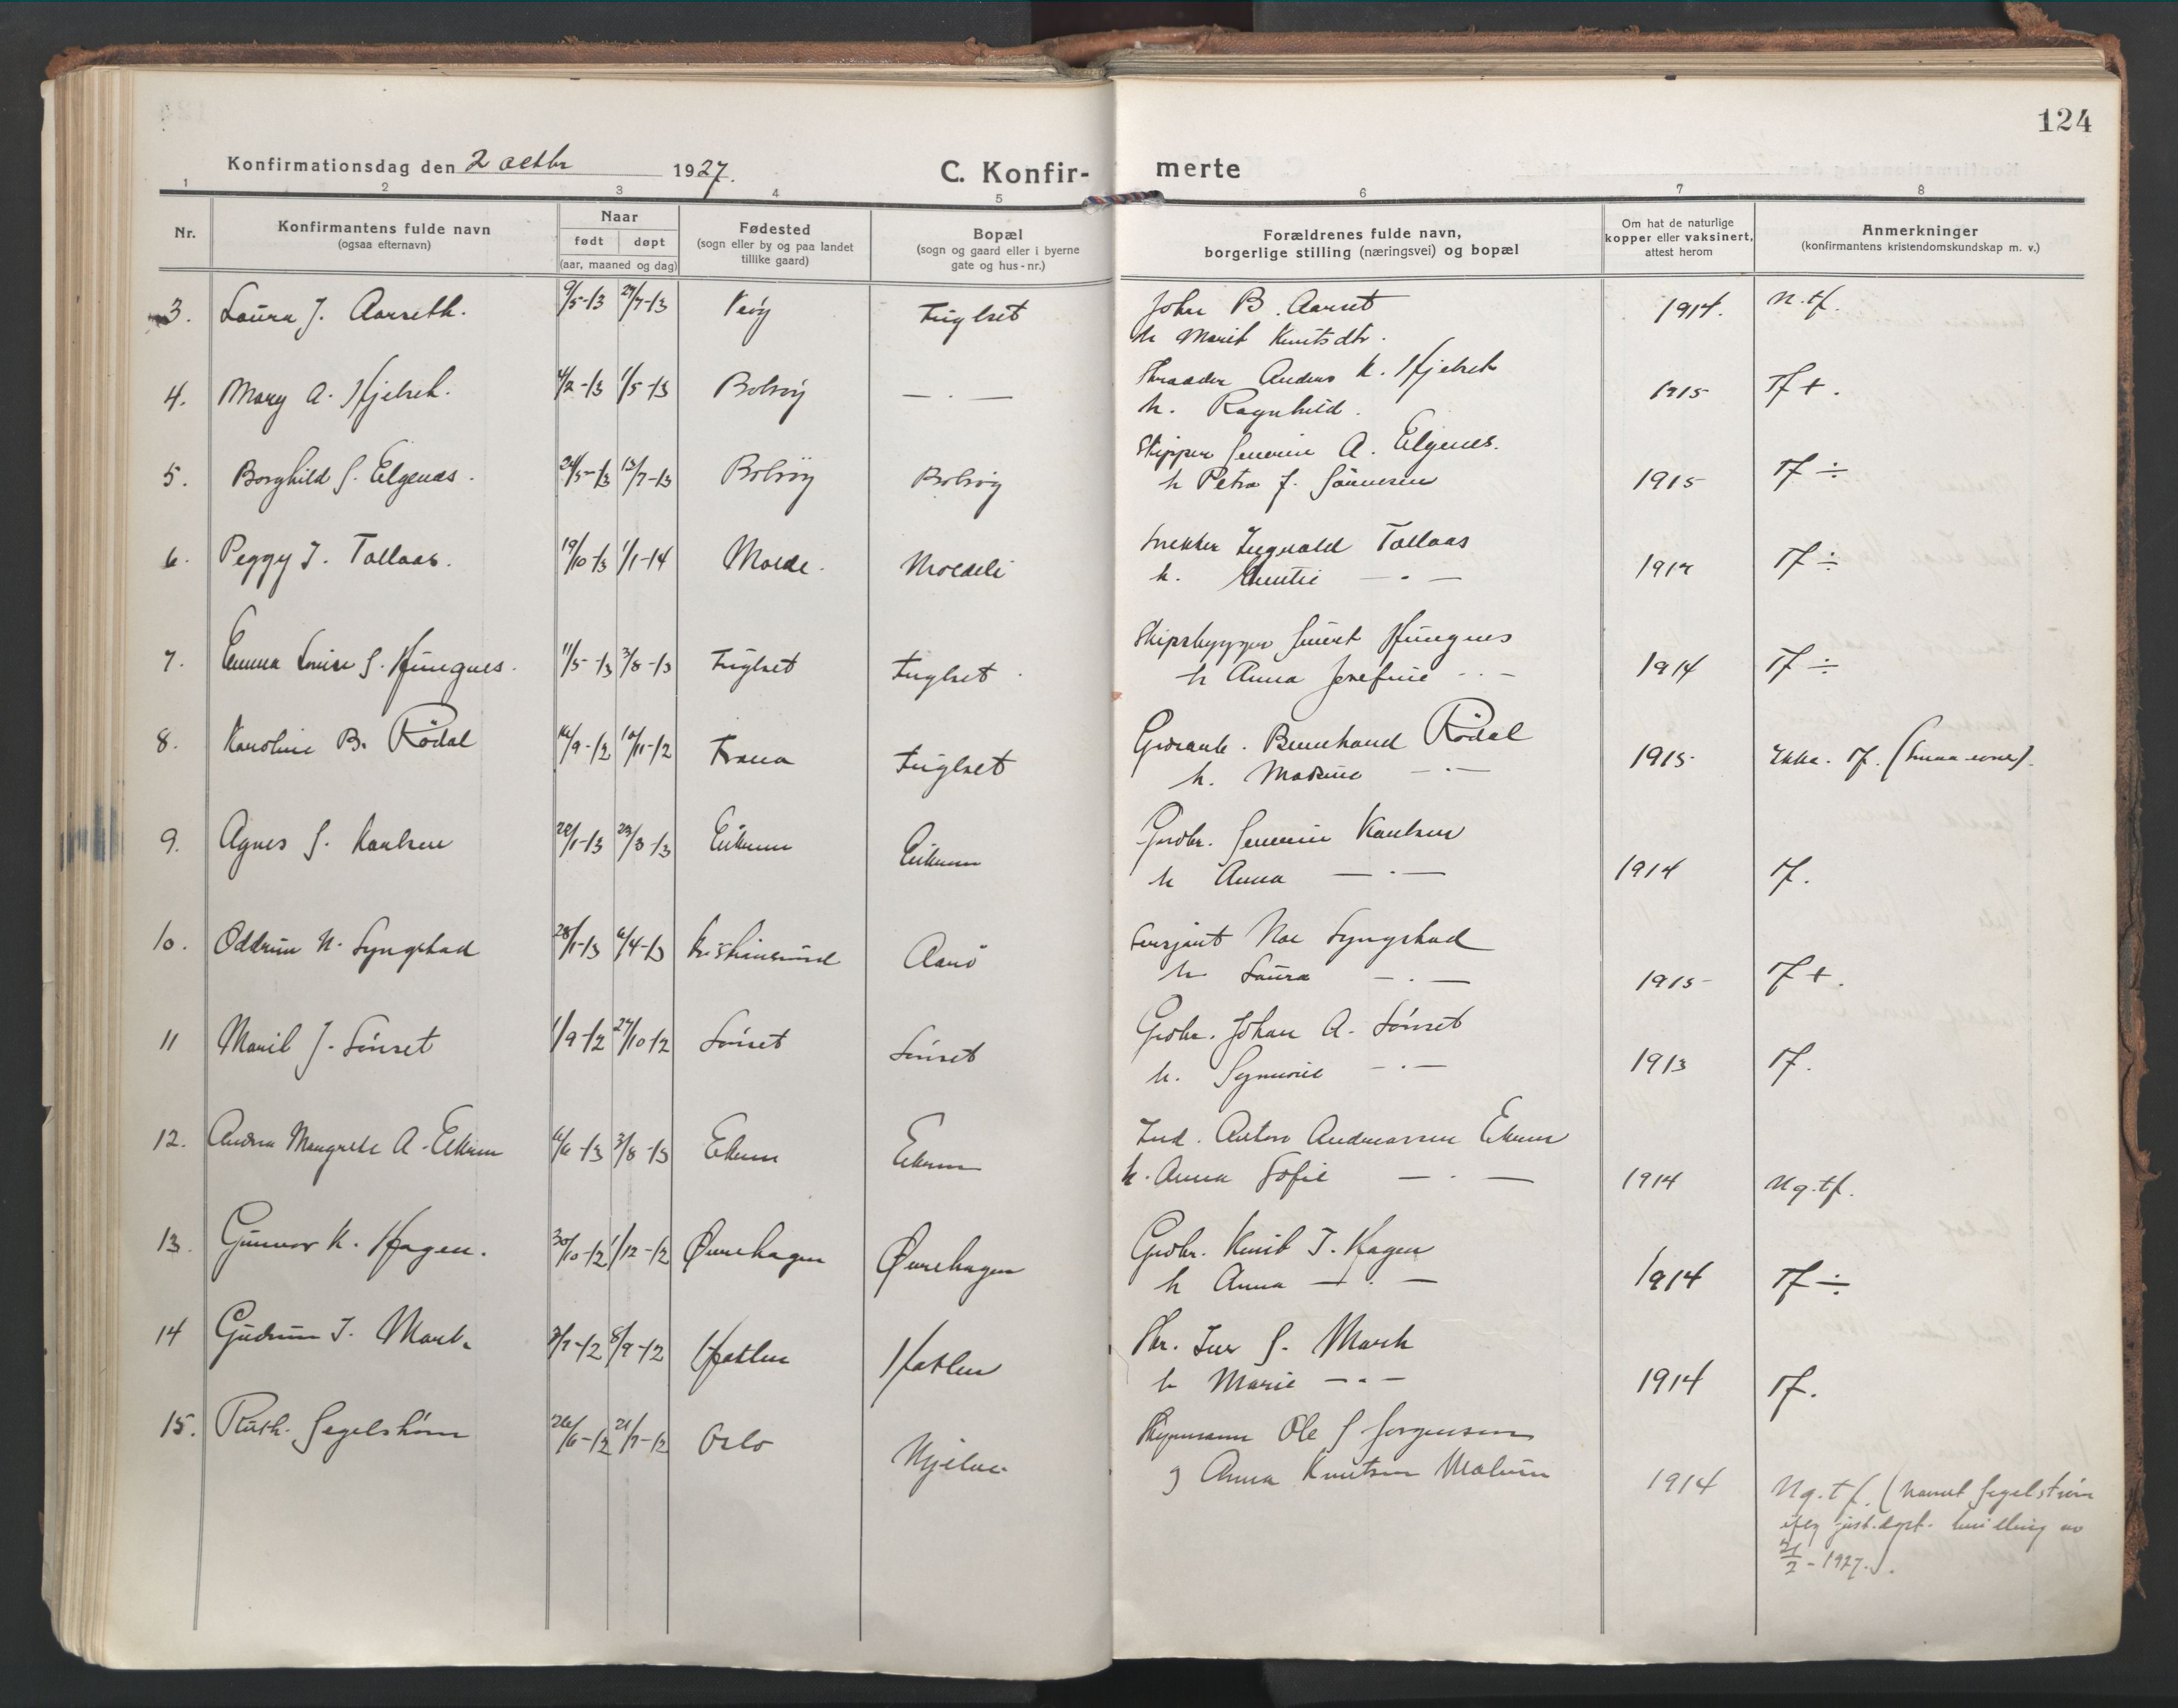 124
Konfirmationsdag den 2 octbr 1927.
C. Konfir- merte
1 2 3 4 5 6 7 8
Nr.
Konfirmantens fulde navn
(ogsaa efternavn)
Naar
født døpt
(aar, maaned og dag)
Fødested
(sogn eller by og paa landet
tillike gaard)
Bopæl
(sogn og gaard eller i byerne
gate og hus-nr.)
Forældrenes fulde navn,
borgerlige stilling (næringsvei) og bopæl
Om hat de naturlige
kopper eller vaksinert,
attest herom
Anmerkninger
(konfirmantens kristendomskundskap m. v.)
3. Laura J. Aarseth. 9/5-13 27/7-13 Veøy Fuglset John B. Aarset 1914. N.tf.
h Marit Knutsdtr.
4. Mary A. Hjelset. 4/2-13 1/5-13 Bolsøy — . — Anders K. Hjelset 1915 Tf +.
h. Ragnhild.
5. Borghild S. Elgenes. 24/5-13 13/7-13 Bolsøy Bolsøy Skipper Severin A. Elgenes. 1915 Tf ÷
h Petra J.
6. Peggy I. Tallaas. 19/10-13 1/1-14 Molde. Moldeli Snekker Ingvald Tallaas Tf ÷
h. — . —
7. Emma Louise S. Hungnes. 11/5-13 3/8-13 Fuglset Fuglset Skipsbygger Sivert Hungnes 1914 Tf ÷
h Anna Josefine - . -
8. Karoline B. Rödal 14/9-12 10/11-12 Fræna Fuglset Bernhard Rödal 1915 Tf. (smaa evner).
h. — . —
9. Agnes S. Karlsen 22/1-13 23/3-13 Eikrem Eikrem Grdbr. Severin Karlsen
h Anna — . — 1914 Tf.
10. Oddrun N. Syngstad 28/1-13 6/4-13 Kristiansund Aarö Sersjant Noe Syngstad
h Laura — . — 1915 Tf +.
11 Marit J. Sönset 1/9-12 27/10-12 Sönset Sönset Grdbr. Johan A. Sönset
h. — . — 1913 Tf.
12. Andrea Margrete A. Eikrem 6/6-13 3/8-13 Eikrem Eikrem Ind. Anton Andreassen Eikrem
h. Anna Sofie — . — 1914 Ng.tf.
13. Gunvor K. Hagen. 30/10-12 1/12-12 Øverhagen Øverhagen Grdbr. Knut T. Hagen
h Anna — . — 1914 Tf ÷
14 Gudrun I. Mark. 3/7-12 8/9-12 Hatlen Hatlen Iver S. Mark
h Marie — . — 1914 Tf.
15. Ruth Segelström 26/6-12 21/7-12 Oslo Styrmann Ole S Jørgensen
og Anna Knutsen 1914 Ng.tf. (Navnet Segelström
iflg just.dept. av
21/2-1927.).